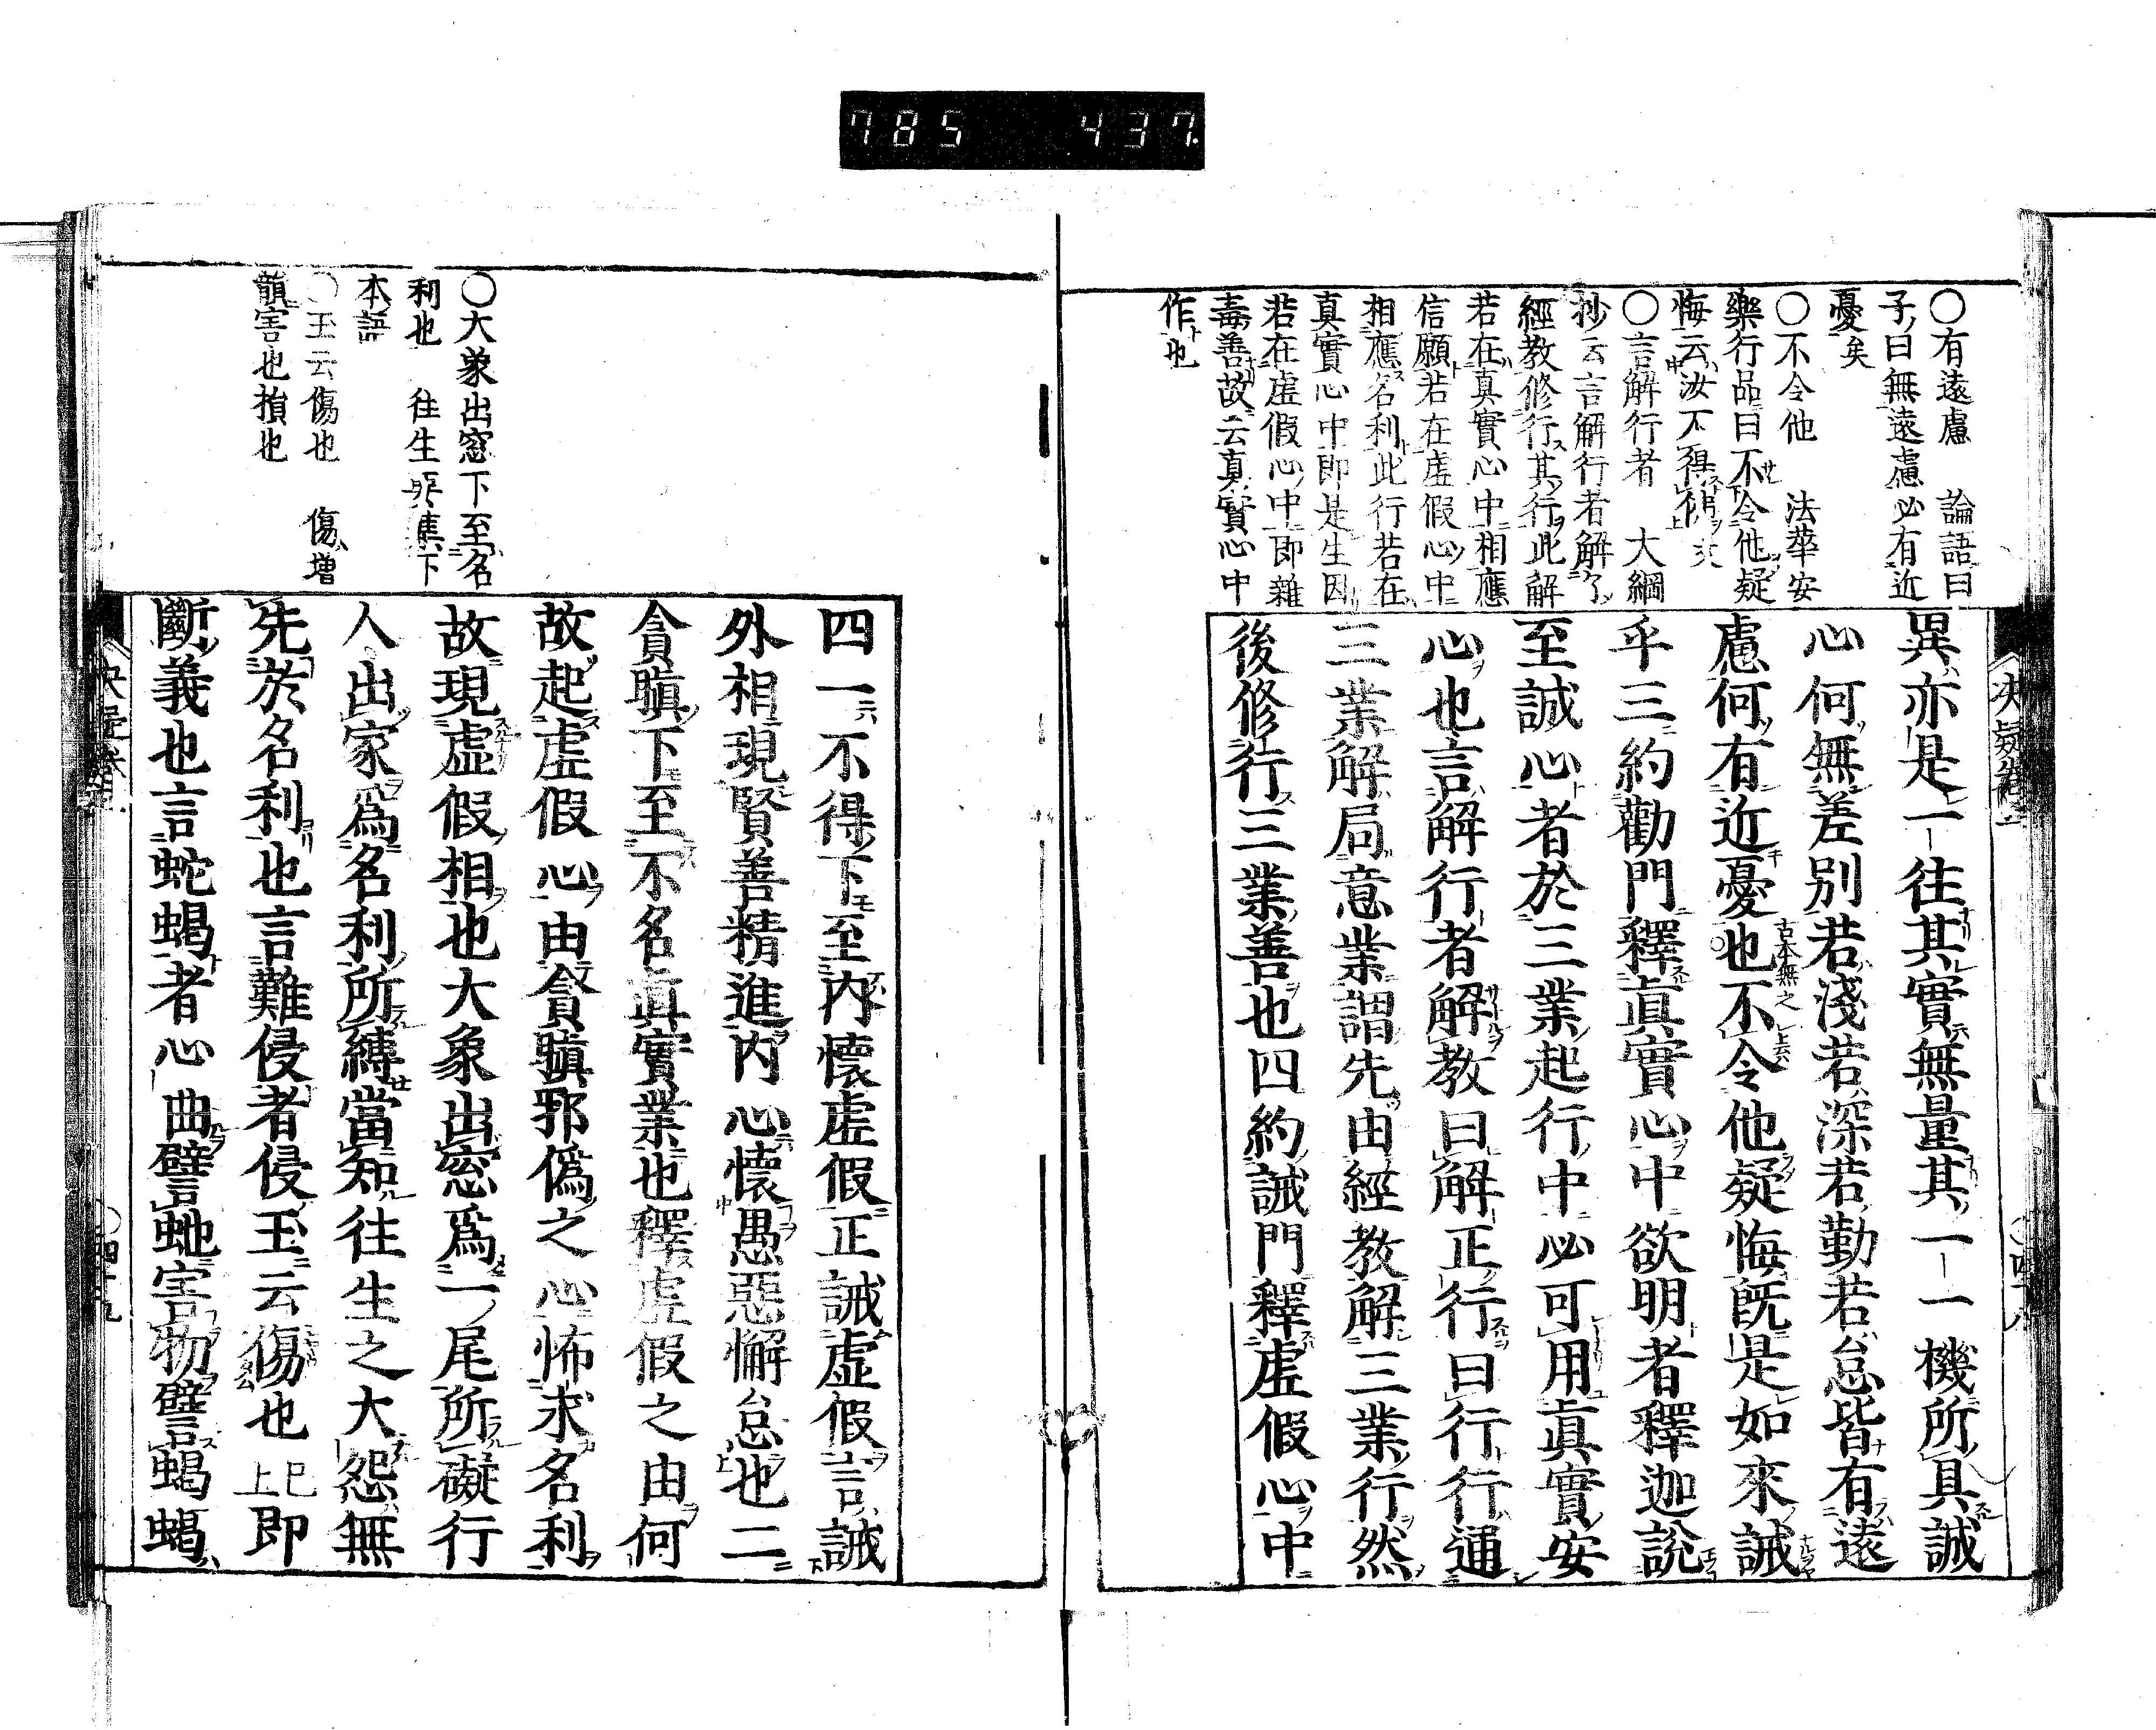 785 437
〇有遠慮 論語曰
子曰無遠慮必有近
憂矣
〇不令他 法華安
樂行品曰不令他疑
悔云汝不得佛文
〇言解行者 大綱
抄云言解行者解了
經教修行其行此解
若在真實心中相應
信願若在虛假心中
相應名利此行若在
真實心中即是生因
若在虛假心中即雜
毒善故云真實心中
作也
異亦是一往其實無量其一一機所具誠
心何無差別若淺若深若勤若怠皆有遠
慮何有近憂也不令他疑悔旣是如來誠
古本無之
乎三約勸門釋眞實心中欲明者釋迦說
至誠心者於三業起行中必可用眞實安
心也言解行者解教曰解正行曰行行通
三業解局意業謂先由經教解三業行然
後修行三業善也四約誡門釋虛假心中
決疑卷二
〇四十八
〇大象出窓下至名
利也 往生要集下
本語
〇玉云傷也 傷增
韻害也損也
四一不得下至內懷虛假正誡虛假言誡
外相現賢善精進內心懷愚惡懈怠也二
貪瞋下至不名眞實業也釋虛假之由何
故起虛假心由貪瞋邪僞之心怖求名利
故現虛假相也大象出窓爲一尾所礙行
人出家爲名利所縛當知往生之大怨無
先於名利也言難侵者侵玉云傷也已上即
斷義也言蛇蝎者心曲譬虵害物譬蝎蝎
〇四十九